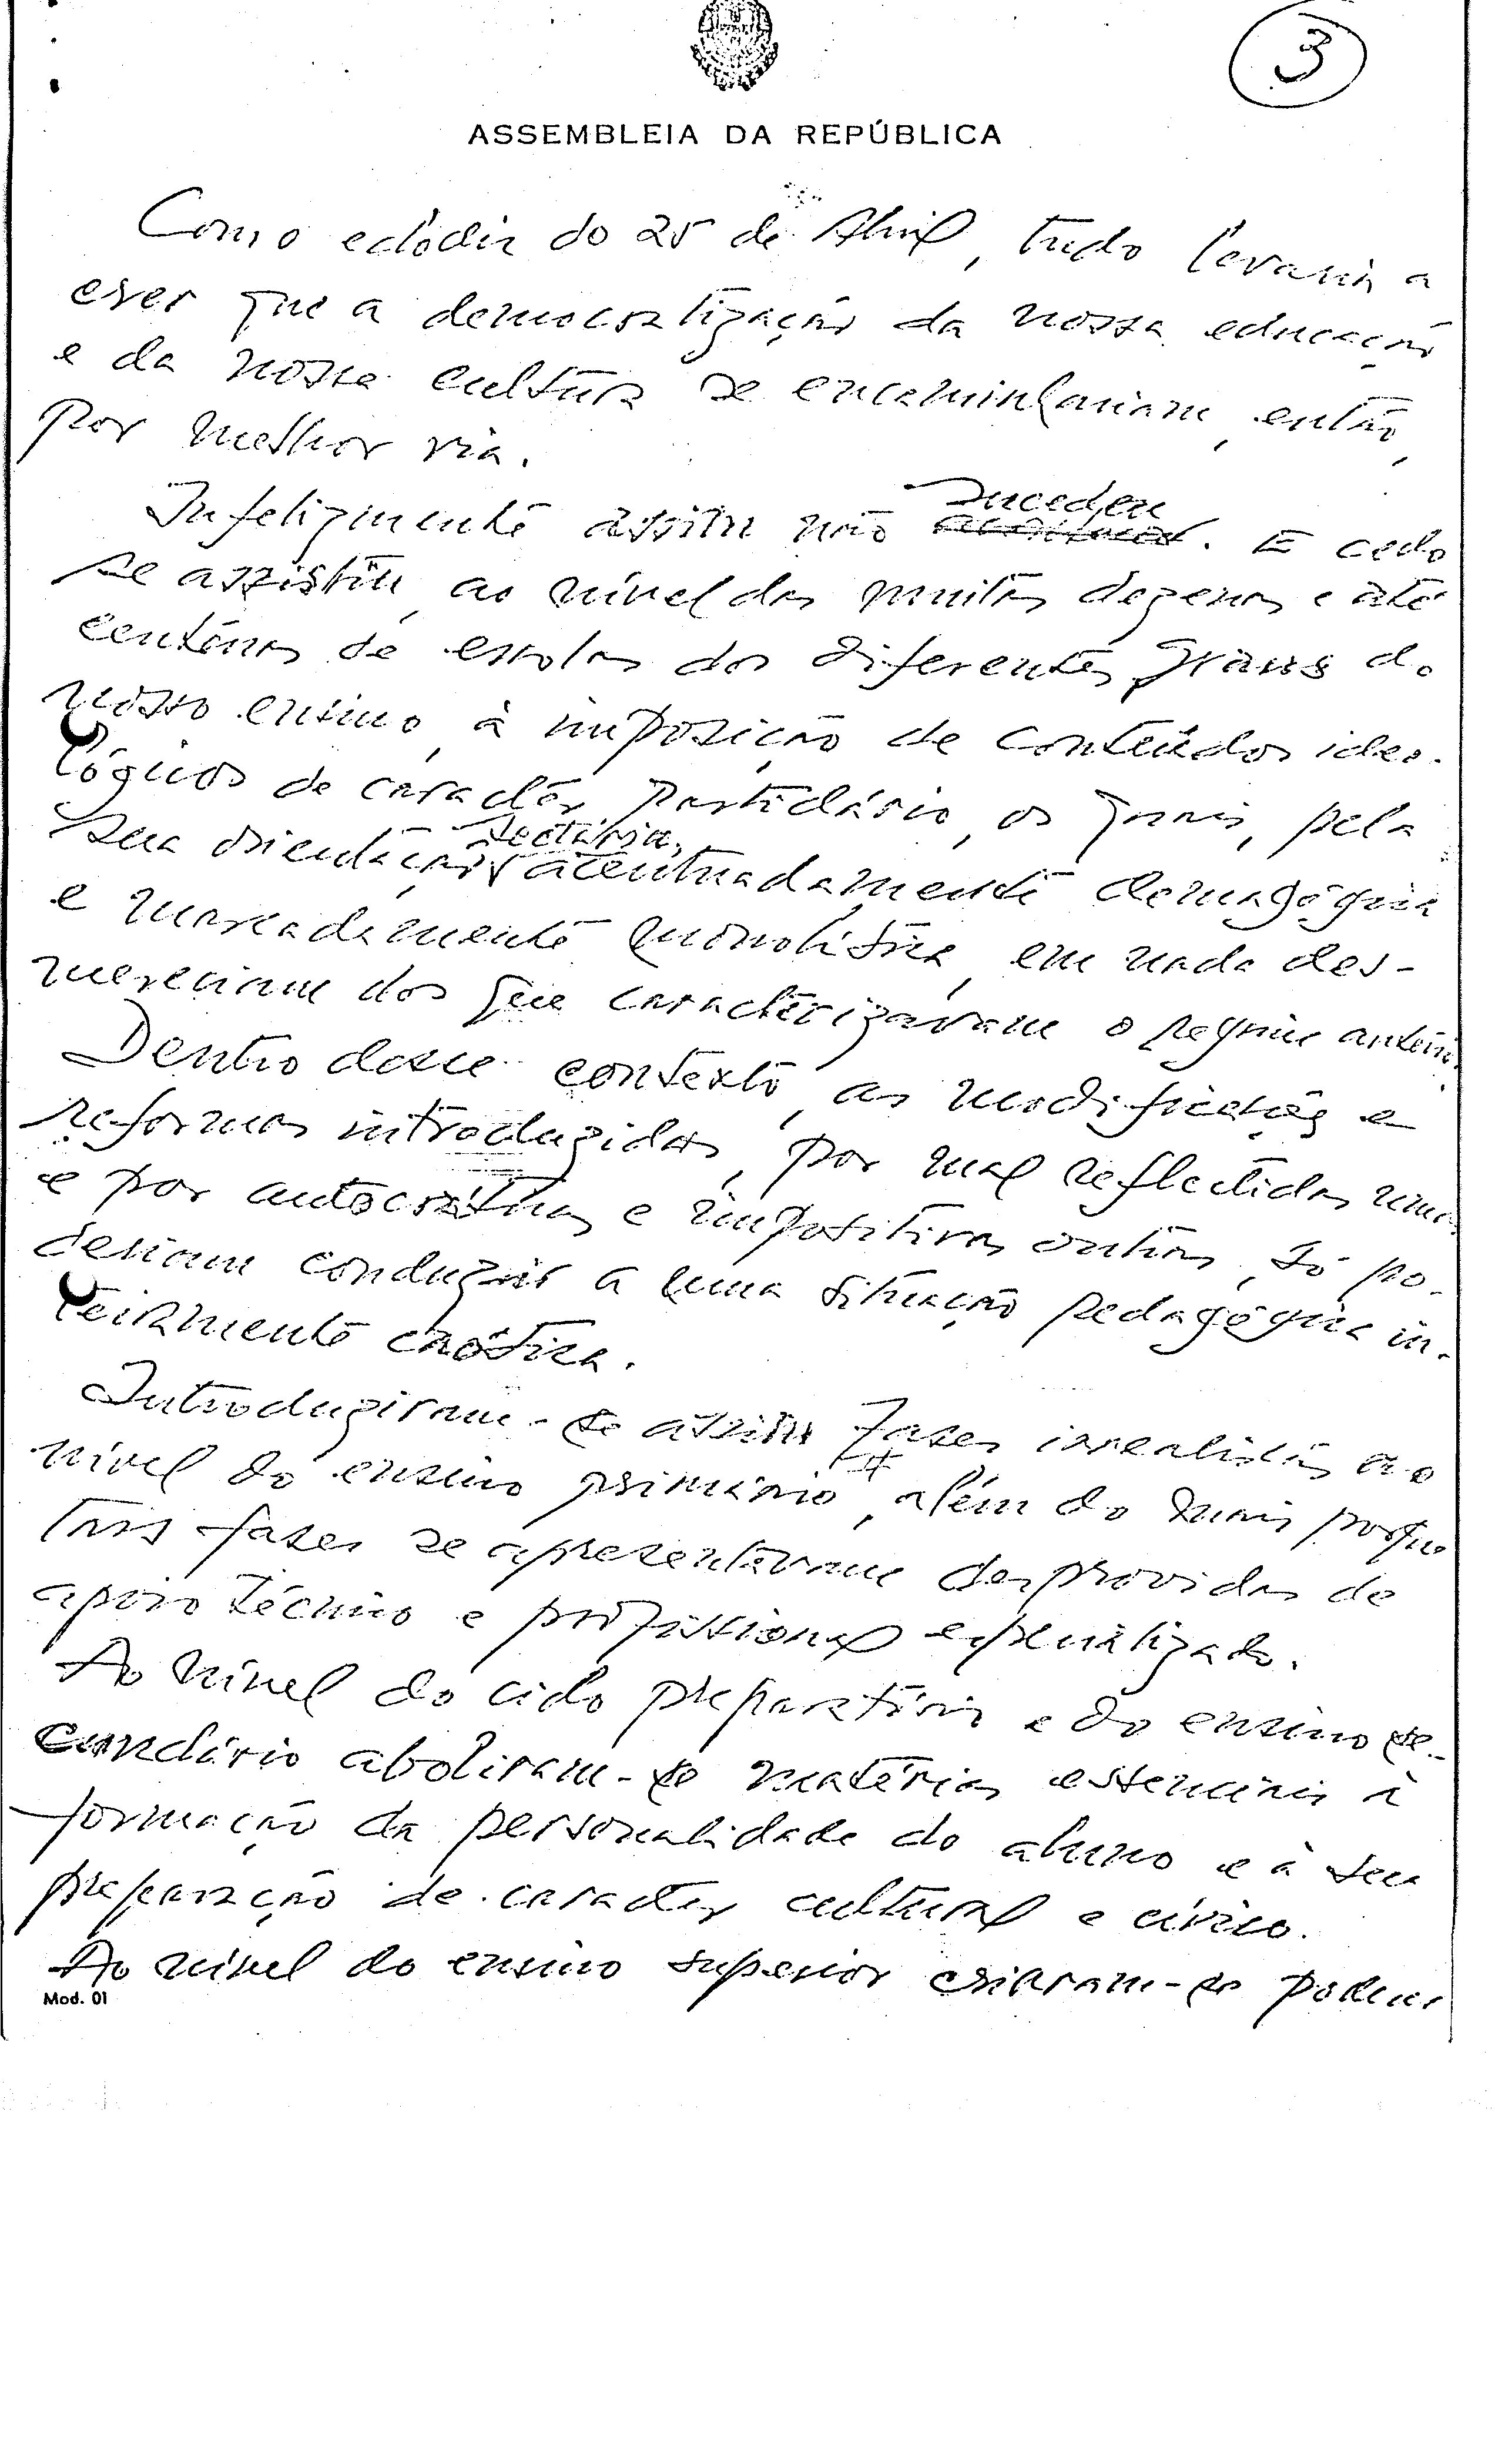 3
ASSEMBLEIA DA REPÚBLICA
Como eclodir do 25 de Abril, tudo levaria a
crer que a democratização da nossa educação
e da nossa cultura se encaminhariam, então,
por melhor via.
Infelizmente assim não sucedeu. E cedo
se assistiu, ao nível das muitas dezenas e até
centenas de escolas dos diferentes graus do
nosso ensino, à imposição de conteúdos ideo-
lógicos de carácter partidário, os quais, pela
sua orientação sectária, acentuadamente demagógica
e marcadamente monolítica, em nada des-
mereciam dos que caracterizavam o regime anterior.
Dentro desse contexto, as modificações e
reformas introduzidas, por mal reflectidas umas
e por autocráticas e impositivas outras, só po-
deriam conduzir a uma situação pedagógica in-
teiramente caótica.
Introduziram-se assim fases irrealistas ao
nível do ensino primário, além do mais porque
tais fases se apresentavam desprovidas de
apoio técnico e profissional especializado.
Ao nível do ciclo preparatório e do ensino se-
cundário aboliram-se matérias essenciais à
formação da personalidade do aluno e à sua
preparação de carácter cultural e cívico.
Ao nível do ensino superior criaram-se
Mod. 01